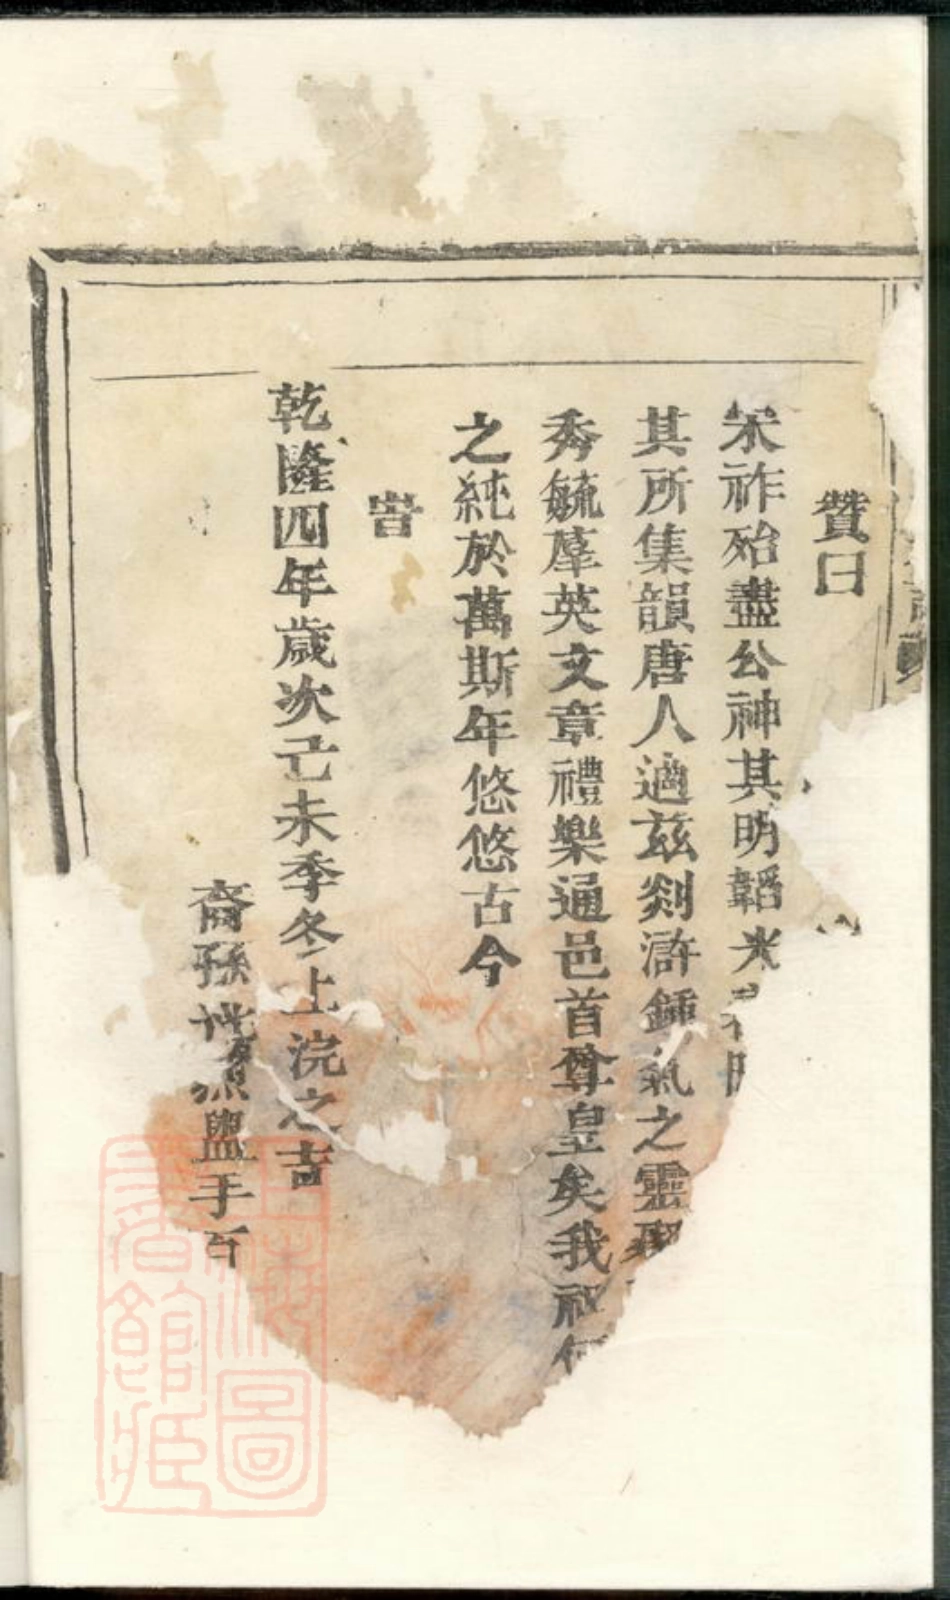 贊曰
宋祚殆盡公神其明韜光
其所集韻唐人適兹剡滸鍾氣之靈
秀毓羣英文章禮樂通邑首尊皇矣我祖
之純於萬斯年悠悠古今
旹
乾隆四年歲次己未季冬上浣之吉
裔孫 盥手百
上海圖書館藏